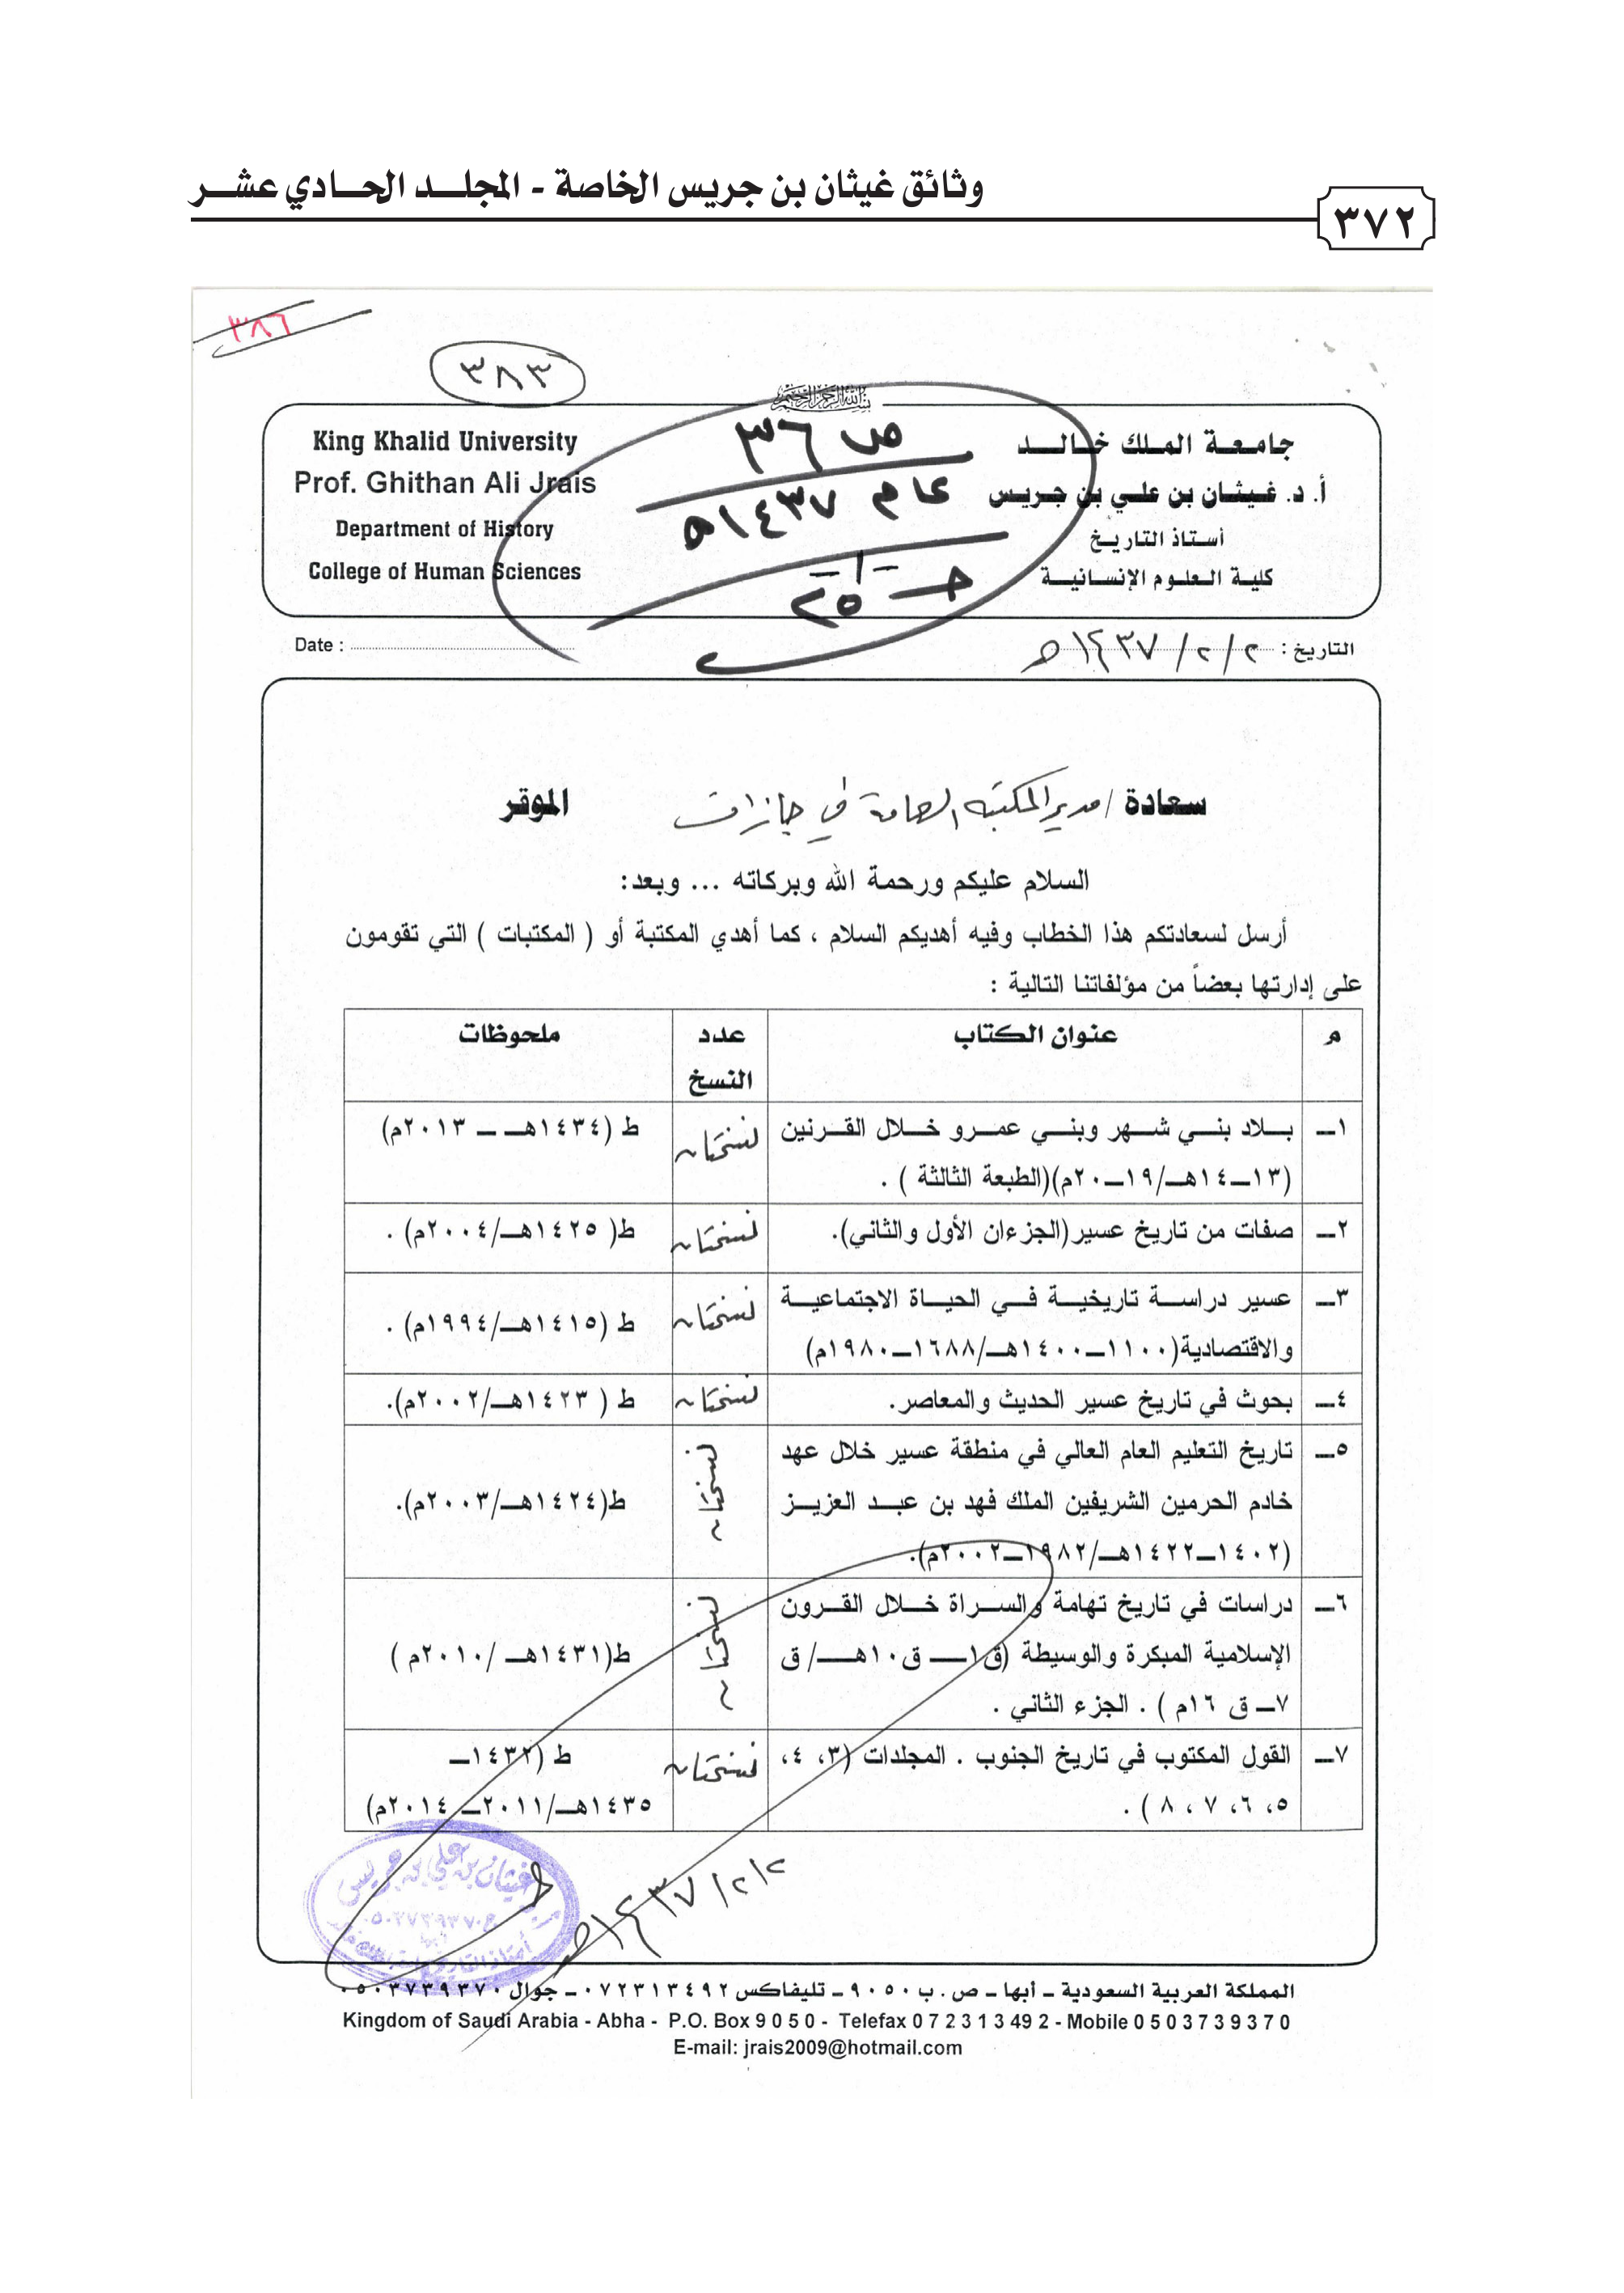 وثائق غيثان بن جريس الخاصة - المجلد الحادي عشر
٣٧٢
٣٨٦
٣٨٣
بسم الله الرحمن الرحيم
جامعة الملك خالد
أ. د. غيثان بن علي بن جريس
أستاذ التاريخ
كلية العلوم الإنسانية
King Khalid University
Prof. Ghithan Ali Jrais
Department of History
College of Human Sciences
ص ٣٦
عام ١٤٣٧هـ
التاريخ : ٢/٢/١٤٣٧هـ
Date :
سعادة / مدير المكتبة العامة في جازان الموقر
السلام عليكم ورحمة الله وبركاته ... وبعد:
أرسل لسعادتكم هذا الخطاب وفيه أهديكم السلام ، كما أهدي المكتبة أو ( المكتبات ) التي تقومون
على إدارتها بعضاً من مؤلفاتنا التالية :
م عنوان الكتاب عدد النسخ ملحوظات
١ــ بلاد بني شهر وبني عمرو خلال القرنين نسختان ط (١٤٣٤هـ ــ ٢٠١٣م)
(١٣ــ١٤هـ/١٩ــ٢٠م)(الطبعة الثالثة ) .
٢ــ صفات من تاريخ عسير(الجزءان الأول والثاني). نسختان ط( ١٤٢٥هـ/٢٠٠٤م) .
٣ــ عسير دراسة تاريخية في الحياة الاجتماعية نسختان ط (١٤١٥هـ/١٩٩٤م) .
والاقتصادية(١١٠٠ــ١٤٠٠هـ/١٦٨٨ــ١٩٨٠م)
٤ــ بحوث في تاريخ عسير الحديث والمعاصر. نسختان ط ( ١٤٢٣هـ/٢٠٠٢م).
٥ــ تاريخ التعليم العام العالي في منطقة عسير خلال عهد نسختان ط(١٤٢٤هـ/٢٠٠٣م).
خادم الحرمين الشريفين الملك فهد بن عبد العزيز
(١٤٠٢ــ١٤٢٢هـ/١٩٨٢ــ٢٠٠٢م).
٦ــ دراسات في تاريخ تهامة والسراة خلال القرون نسختان ط(١٤٣١هـ /٢٠١٠م )
الإسلامية المبكرة والوسيطة (ق١ــ ق١٠هـ/ ق
٧ــ ق ١٦م ) . الجزء الثاني .
٧ــ القول المكتوب في تاريخ الجنوب . المجلدات (٣، ٤، نسختان ط (١٤٣٢ــ
٥، ٦، ٧ ، ٨ ) . ١٤٣٥هـ/٢٠١١ــ ٢٠١٤م)
غيثان بن علي بن جريس
٢/٢/١٤٣٧هـ
المملكة العربية السعودية ــ أبها ــ ص . ب ٩٠٥٠ ــ تليفاكس ٠٧٢٣١٣٤٩٢ ــ جوال ٠٥٠٣٧٣٩٣٧٠
Kingdom of Saudi Arabia - Abha - P.O. Box 9 0 5 0 - Telefax 0 7 2 3 1 3 4 9 2 - Mobile 0 5 0 3 7 3 9 3 7 0
E-mail: jrais2009@hotmail.com